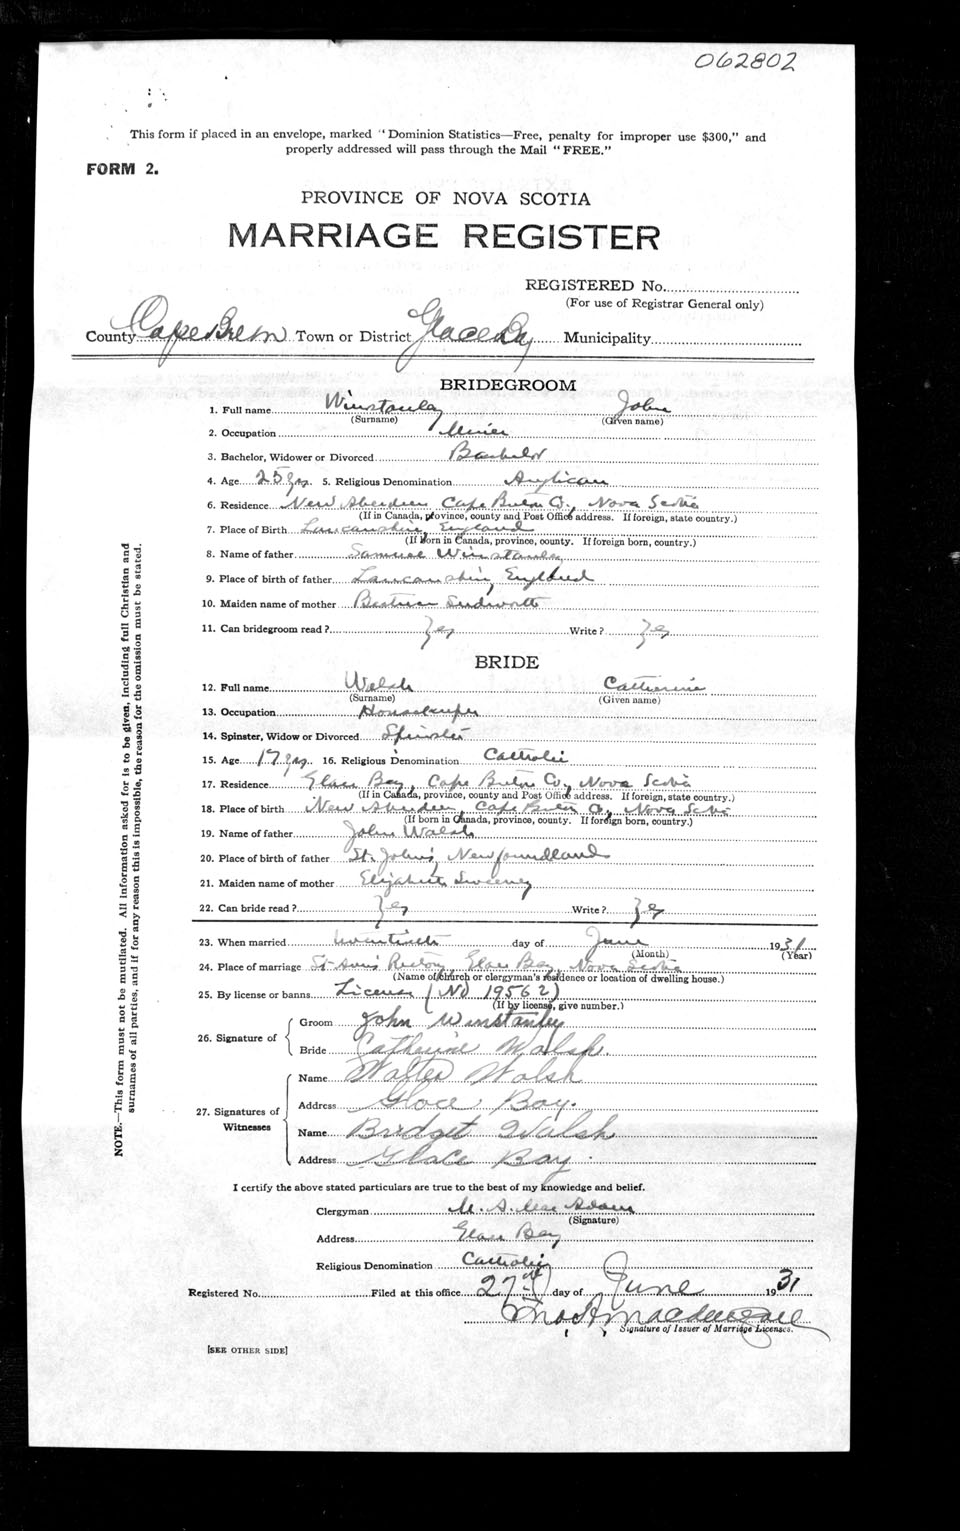 062802
This form if placed in an envelope, marked "Dominion Statistics—Free, penalty for improper use $300," and
properly addressed will pass through the Mail "FREE."
FORM 2.
PROVINCE OF NOVA SCOTIA
MARRIAGE REGISTER
REGISTERED No.
(For use of Registrar General only)
County Cape Breton Town or District Glace Bay Municipality
BRIDEGROOM
1. Full name Winstanley John
(Surname) (Given name)
2. Occupation Miner
3. Bachelor, Widower or Divorced Bachelor
4. Age 25 yrs. 5. Religious Denomination Anglican
6. Residence New Aberdeen, Cape Breton Co., Nova Scotia
(If in Canada, province, county and Post Office address. If foreign, state country.)
7. Place of Birth Lancanshire, England
(If born in Canada, province, county. If foreign born, country.)
8. Name of father Samuel Winstanley
9. Place of birth of father Lancanshire, England
10. Maiden name of mother Sudworth
11. Can bridegroom read? Yes Write? Yes
BRIDE
12. Full name Walsh Catherine
(Surname) (Given name)
13. Occupation Housekeeper
14. Spinster, Widow or Divorced Spinster
15. Age 17 yrs. 16. Religious Denomination Catholic
17. Residence Glace Bay, Cape Breton Co, Nova Scotia
(If in Canada, province, county and Post Office address. If foreign, state country.)
18. Place of birth New Aberdeen, Cape Breton Co, Nova Scotia
(If born in Canada, province, county. If foreign born, country.)
19. Name of father John Walsh
20. Place of birth of father St. John's, Newfoundland
21. Maiden name of mother Elizabeth Sweeney
22. Can bride read? Yes Write? Yes
23. When married twentieth day of June 1931
(Month) (Year)
24. Place of marriage St Ann's Rectory, Glace Bay, Nova Scotia
(Name of church or clergyman's residence or location of dwelling house.)
25. By license or banns License (No 19562)
(If by license, give number.)
26. Signature of
Groom John Winstanley
Bride Catherine Walsh.
27. Signatures of Witnesses
Name Walter Walsh
Address Glace Bay.
Name Bridget Walsh
Address Glace Bay.
I certify the above stated particulars are true to the best of my knowledge and belief.
Clergyman M. A. MacAdam
(Signature)
Address Glace Bay
Religious Denomination Catholic
Registered No. Filed at this office 27th day of June 1931
Signature of Issuer of Marriage Licenses.
[SEE OTHER SIDE]
NOTE.—This form must not be mutilated. All information asked for is to be given, including full Christian and
surnames of all parties, and if for any reason this is impossible, the reason for the omission must be stated.